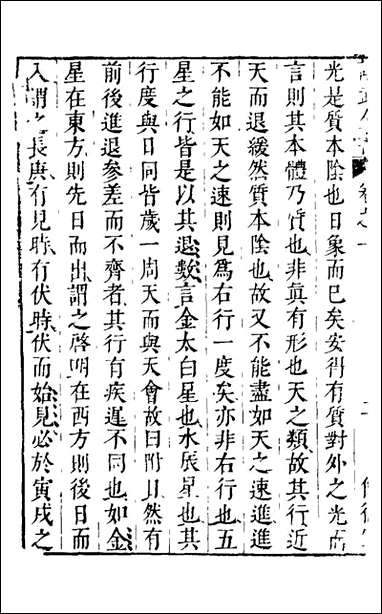 光是質本陰也日象而已矣安得有質對外之光故
言則其本體乃質也非眞有形也天之類故其行近
天而退緩然質本陰也故又不能盡如天之速進進
不能如天之速則見爲右行一度矣亦非右行也五
星之行皆是以其退數言金太白星也水辰星也其
行度與日同皆歲一周天而與天會故曰附日然有
前後進退參差而不齊者其行有疾遲不同也如金
星在東方則先日而出謂之啓明在西方則後日而
入謂之長庚有見時有伏時伏而始見必於寅戌之